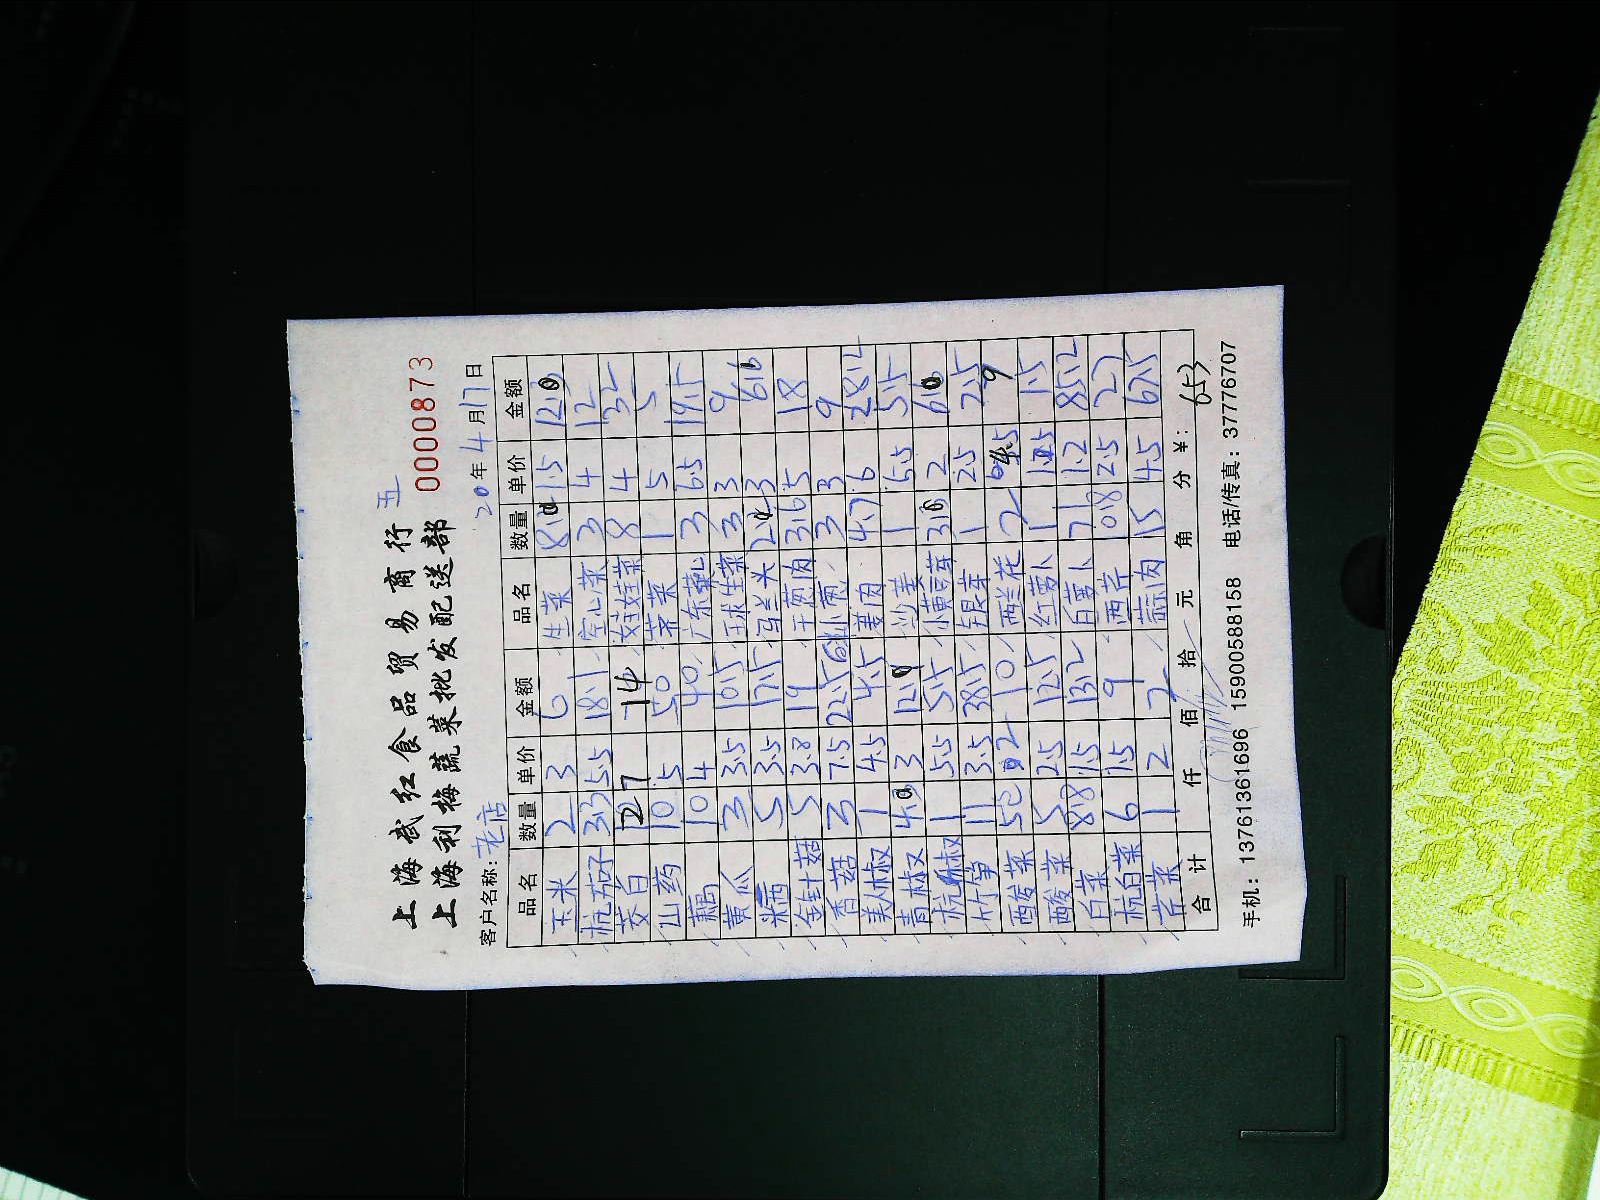 上海武红食品贸易商行 五
上海利梅蔬菜批发配送部 0000873
客户名称: 老店 20年4月17日
品名 数量 单价 金额 品名 数量 单价 金额
玉米 2 3 6 生菜 1.5
杭茄子 3.3 5.5 18.1 空心菜 3 4 12
茭白 2 7 14 娃娃菜 8 4 32
山药 10 5 50 荠菜 1 5 5
藕 10 4 40 3 6.5 19.5
黄瓜 3 3.5 10.5 球生菜 3 3 9
5 3.5 17.5 马兰头 3
金针菇 5 3.8 19 干葱肉 3.6 5 18
香菇 3 7.5 22.5 小葱 3 3 9
美人椒 1 4.5 4.5 姜肉 4.7 6 28.2
青椒 3 沙姜 1 5.5 5.5
杭椒 1 5.5 5.5 小黄豆芽 2
竹笋 11 3.5 38.5 银芽 1 2.5 2.5
西发菜 2 10 西兰花 2 4.5 9
酸菜 5 2.5 12.5 红萝卜 1 1.5
白菜 8.8 1.5 13.2 白萝卜 71 1.2 85.2
杭白菜 6 1.5 9 西芹 10.8 2.5 27
芹菜 1 2 2 蒜肉 15 4.5 67.5
合计 仟 佰 拾 元 角 分 ¥: 653
手机: 13761361696 15900588158 电话/传真: 37776707